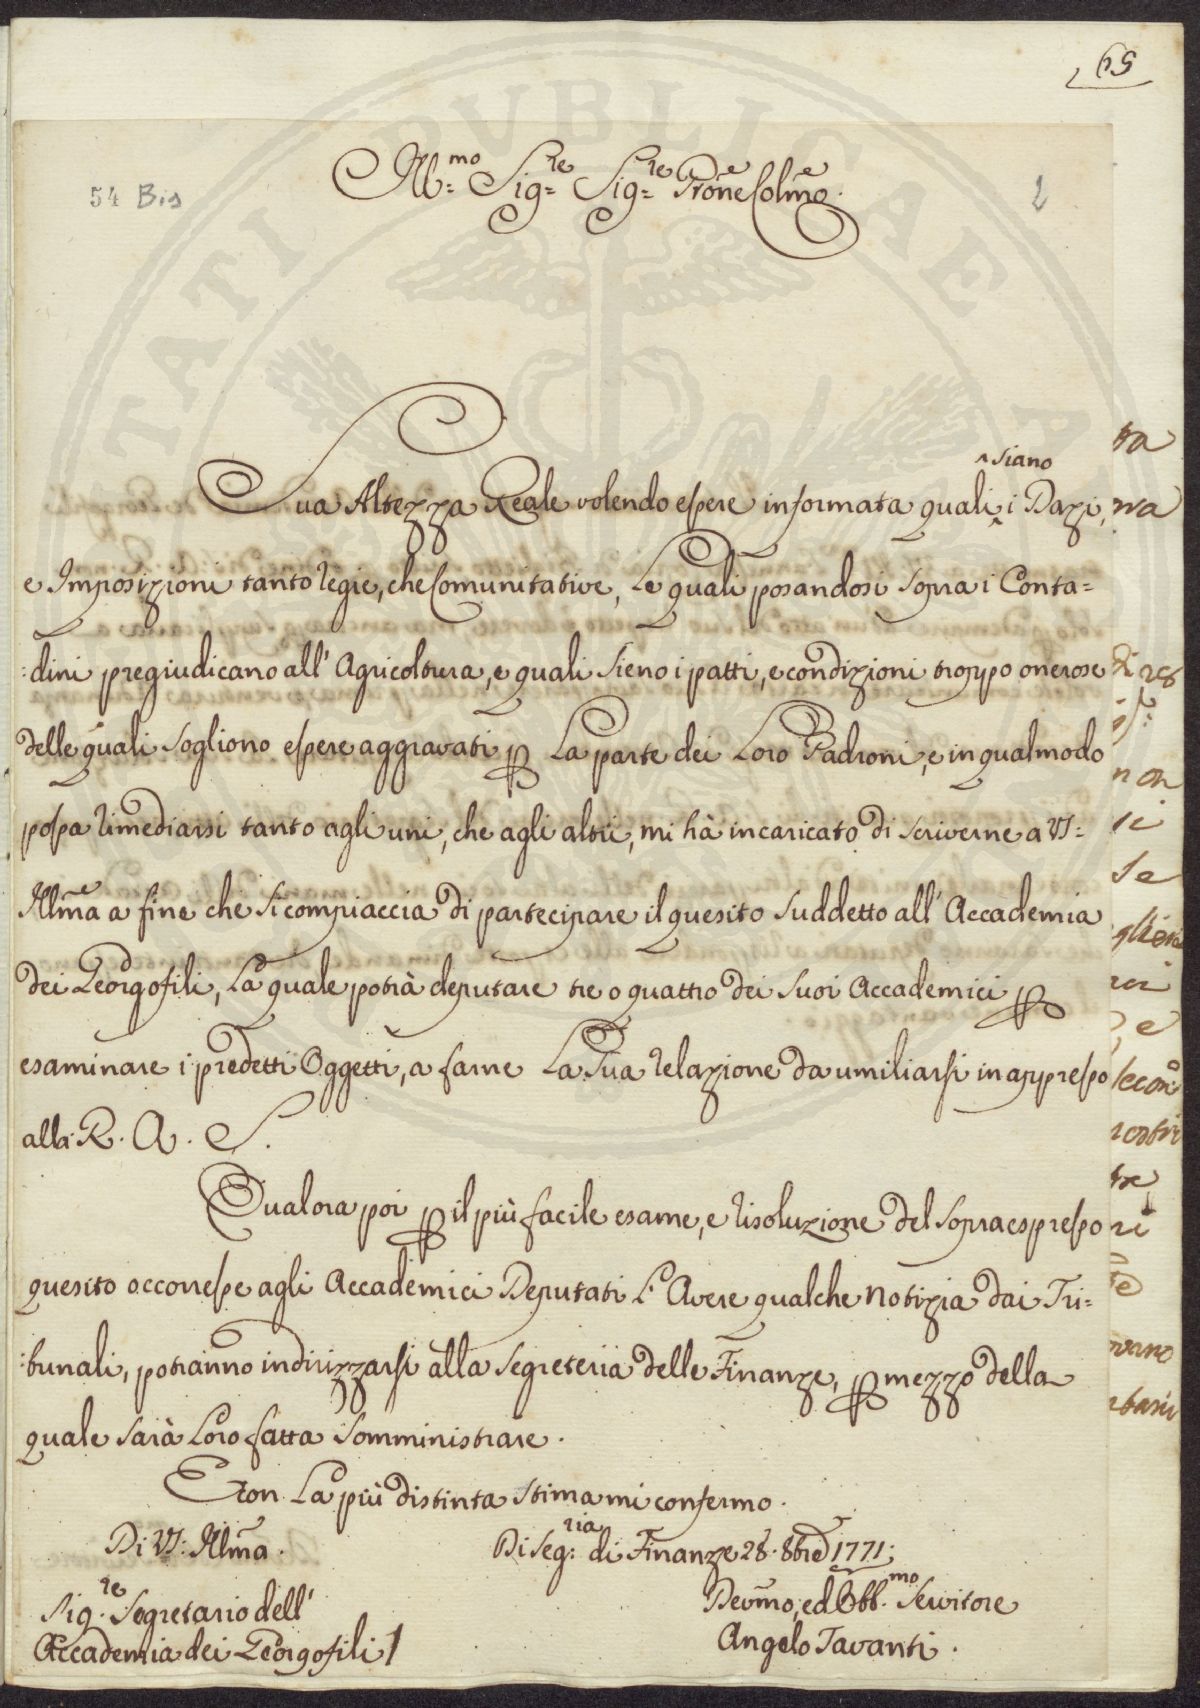 65
54 Bis
2
Ill:mo Sig:re Sig:re Prone Colmo.
siano
Sua Altezza Reale volendo essere informata quali i Dazi,
e Imposizioni tanto regie, che Comunitative, Le quali posandosi sopra i Conta=
=dini pregiudicano all' Agricoltura, e quali sieno i patti, e condizioni troppo onerose
delle quali sogliono essere aggravati p La parte dei Loro Padroni, e in qual modo
possa rimediarsi tanto agli uni, che agli altri, mi hà incaricato di scriverne a VS:
Illma a fine che si compiaccia di partecipare il quesito suddetto all' Accademia
dei Georgofili, La quale potrà deputare tre o quattro dei suoi Accademici p
esaminare i predetti Oggetti, a farne La Sua relazione da umiliarsi in appresso
alla R. A. S.
Qualora poi p il più facile esame, e risoluzione del sopraespresso
quesito occorresse agli Accademici Deputati L' Avere qualche notizia dai Tri=
=bunali, potranno indirizzarsi alla Segreteria delle Finanze, p mezzo della
quale sarà Loro fatta somministrare.
E con La più distinta stima mi confermo.
Di VS: Illma.
Di Seg:ria di Finanze 28. 8bre 1771;
Sig.re Segretario dell'
Accademia dei Georgofili
Devmo, ed Obb.mo Servitore
Angelo Tavanti.
ta
non
si
se
, e
tre